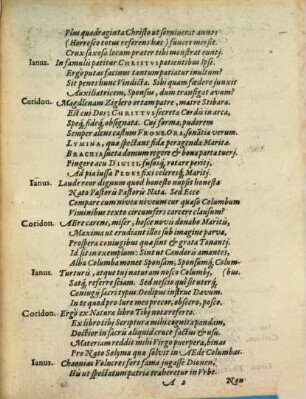 Plus quadraginta Christo ut seruiuerat annos
(Horresco totus referens has) fuucre mersit.
Crux saxosa locum prater tibi monstrat cuntj.
Ianus. In famulū patitur CHRISTVS patientibus ipse.
Ergo putas facinus tantum patiatur inultum?
Sit penes hunc Vindicta. Sibi quam fœdere junxit
Auxiliatricem, Sponsus, dum transigat ævum?
Coridon. Magdlenam Ziglero ortam patre, matre Stibara.
Est cui Dos; CHRISTVS secreta Cordis in arca,
Speq́; fideq́; obsignata. Cui forma, pudorem
Semper alens castum FRONS, ORA, sonātia verum.
LVMINA, quæ spectant fida peragenda Maritæ
BRACHIA sueta domum regere & bona parta tueri.
Pingere acu DIGITI, fususq́; rotare periti,
Ad pia jussa PEDES fixi celeresq́; Mariti.
Ianus. Laude reor dignum quod honesto nupset honesta
Nato Pastoris Pastoris Nata. Sed Ecce
Compare cum nivea niveum cur quaso Columbum
Viminibus textus circumfers carcere clausum?
Coridon. AEre carens, miser, hos ceu novis donabo Maritis,
Maxima ut erudiant illos sub imagine parva,
Prospera conjugibus quæ sint & grata Tonanti.
Id sit in exemplum: Sint ut Candoris amantes,
Alba Columba monet Sponsam, Sponsumq́; Colum-
Ianus. Turturis, atque tuj naturam nosco Columbj, (bus.
Satq́; referre sciam. Sed nescio qui sit uterq́;
Coniugij sacri typus. Oedipus instrue Davum.
In te quod pro iure meo precor, obsecro, posco.
Coridon. Ergo ex Natura libro Tibj nota referto.
Ex libro tibj Scriptura mihi cognita pandam,
Doctior in sacris aliquid crucis factus & usu.
Materiam reddit mihi Virgo puerpera, binas
Pro Nato Solyma qua solvit in AEde Columbas.
Ianus. Chaonias Volucres fert fama jugasse Dionen,
Hū ut spectatum patria traheretur in Vrbe.
A 2 Non